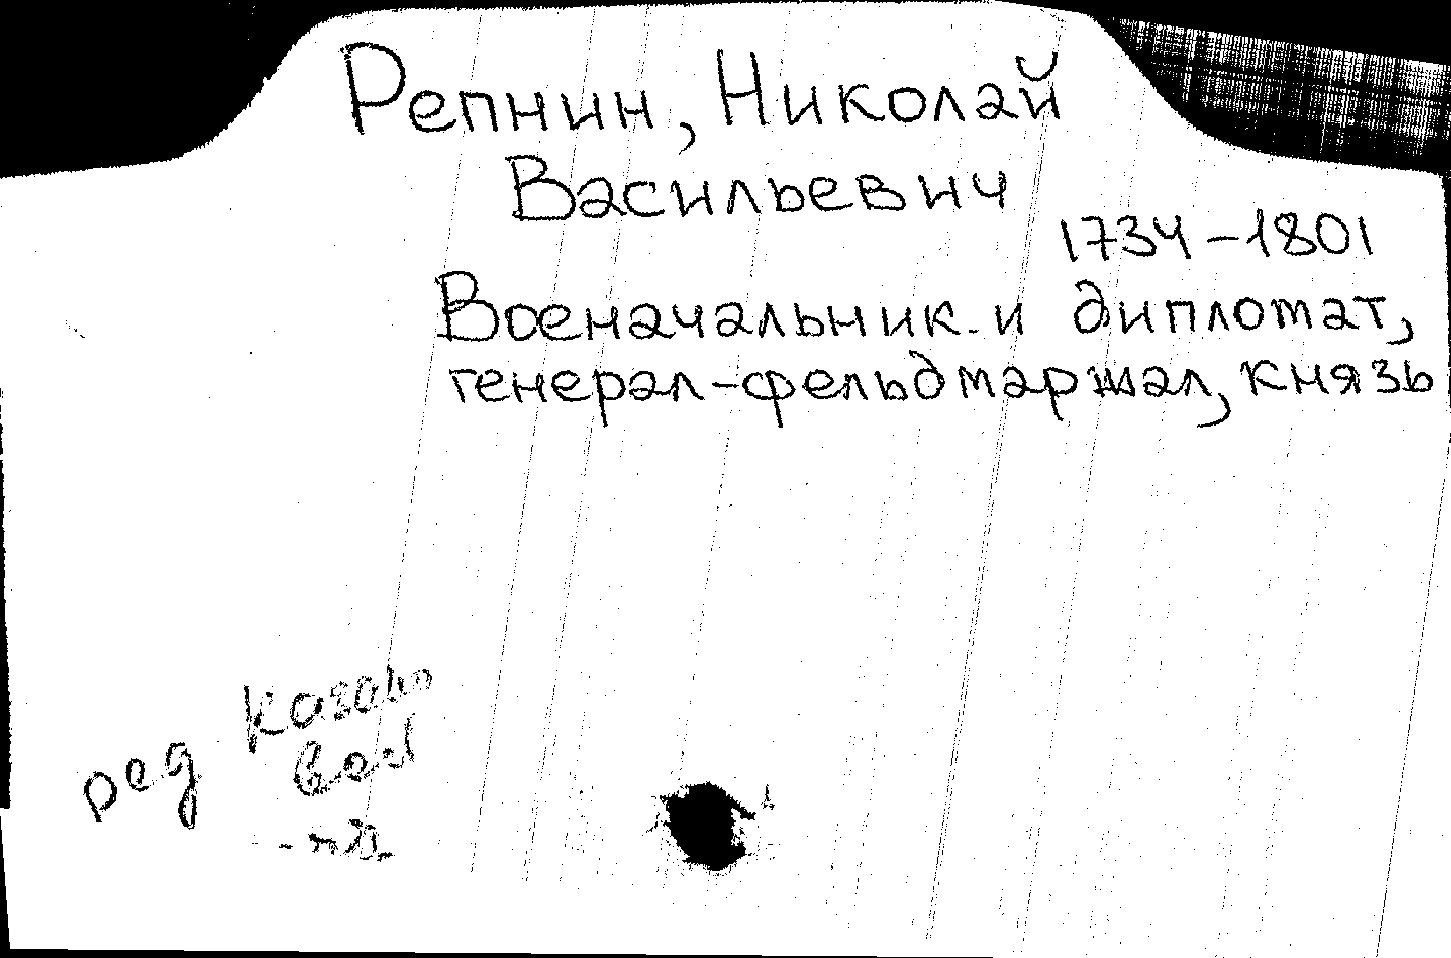 Репнин, Николай
Васильевич
1734-1801
Военачальник и дипломат,
генерал-фельдмаршал, князь
ред